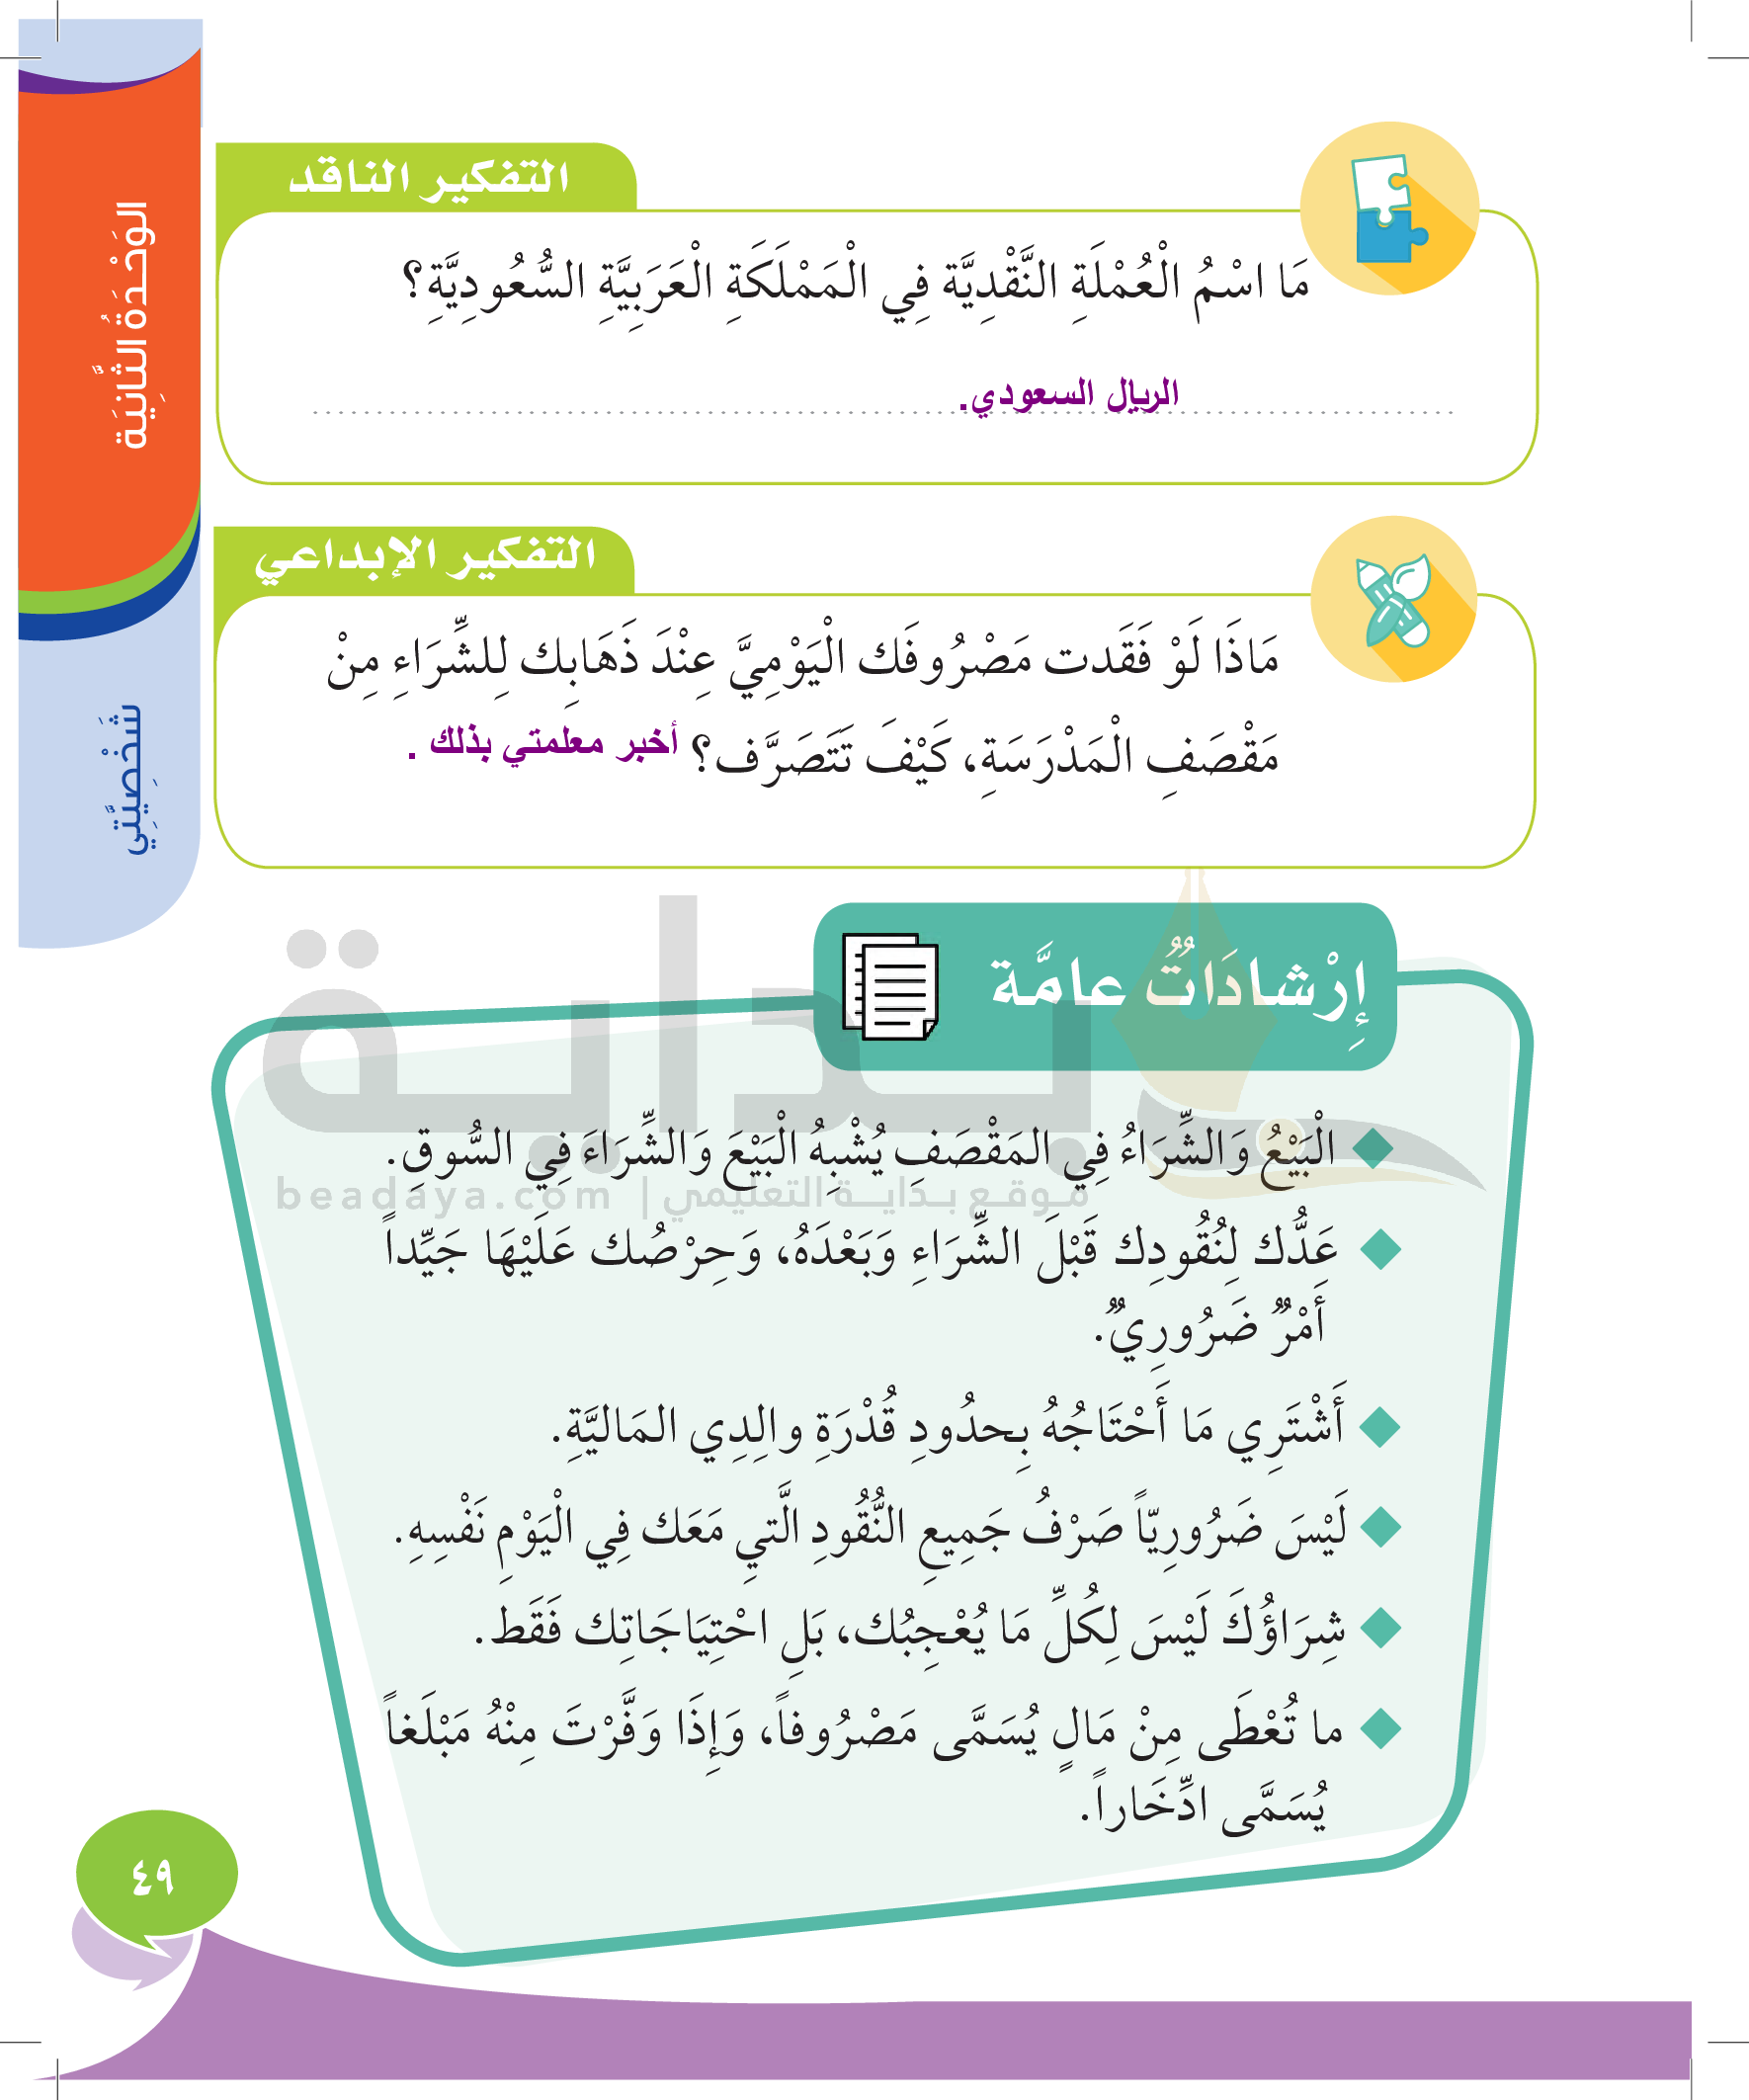 الوَحْدَةُ الثَّانِيَة
شَخْصِيَّتِي
التفكير الناقد
مَا اسْمُ الْعُمْلَةِ النَّقْدِيَّة فِي الْمَمْلَكَةِ الْعَرَبِيَّةِ السُّعُودِيَّةِ؟
الريال السعودي.
التفكير الإبداعي
مَاذَا لَوْ فَقَدت مَصْرُوفَك الْيَوْمِيَّ عِنْدَ ذَهَابِك لِلشِّرَاءِ مِنْ
مَقْصَفِ الْمَدْرَسَةِ، كَيْفَ تَتَصَرَّف؟ أخبر معلمتي بذلك .
إِرْشادَاتٌ عامَّة
بداية
الْبَيْعُ وَالشِّرَاءُ فِي المَقْصَفِ يُشْبِهُ الْبَيْعَ وَالشِّرَاءَ فِي السُّوقِ.
موقع بداية التعليمي | beadaya.com
عَدُّك لِنُقُودِك قَبْلَ الشِّرَاءِ وَبَعْدَهُ، وَحِرْصُك عَلَيْهَا جَيِّداً
أَمْرٌ ضَرُورِيٌّ.
أَشْتَرِي مَا أَحْتَاجُهُ بِحدُودِ قُدْرَةِ والِدِي المَاليَّةِ.
لَيْسَ ضَرُورِيّاً صَرْفُ جَمِيعِ النُّقُودِ الَّتيِ مَعَك فِي الْيَوْمِ نَفْسِهِ.
شِرَاؤُكَ لَيْسَ لِكُلِّ مَا يُعْجِبُك، بَلِ احْتِيَاجَاتِك فَقَط.
ما تُعْطَى مِنْ مَالٍ يُسَمَّى مَصْرُوفاً، وَإِذَا وَفَّرْتَ مِنْهُ مَبْلَغاً
يُسَمَّى ادِّخَاراً.
٤٩